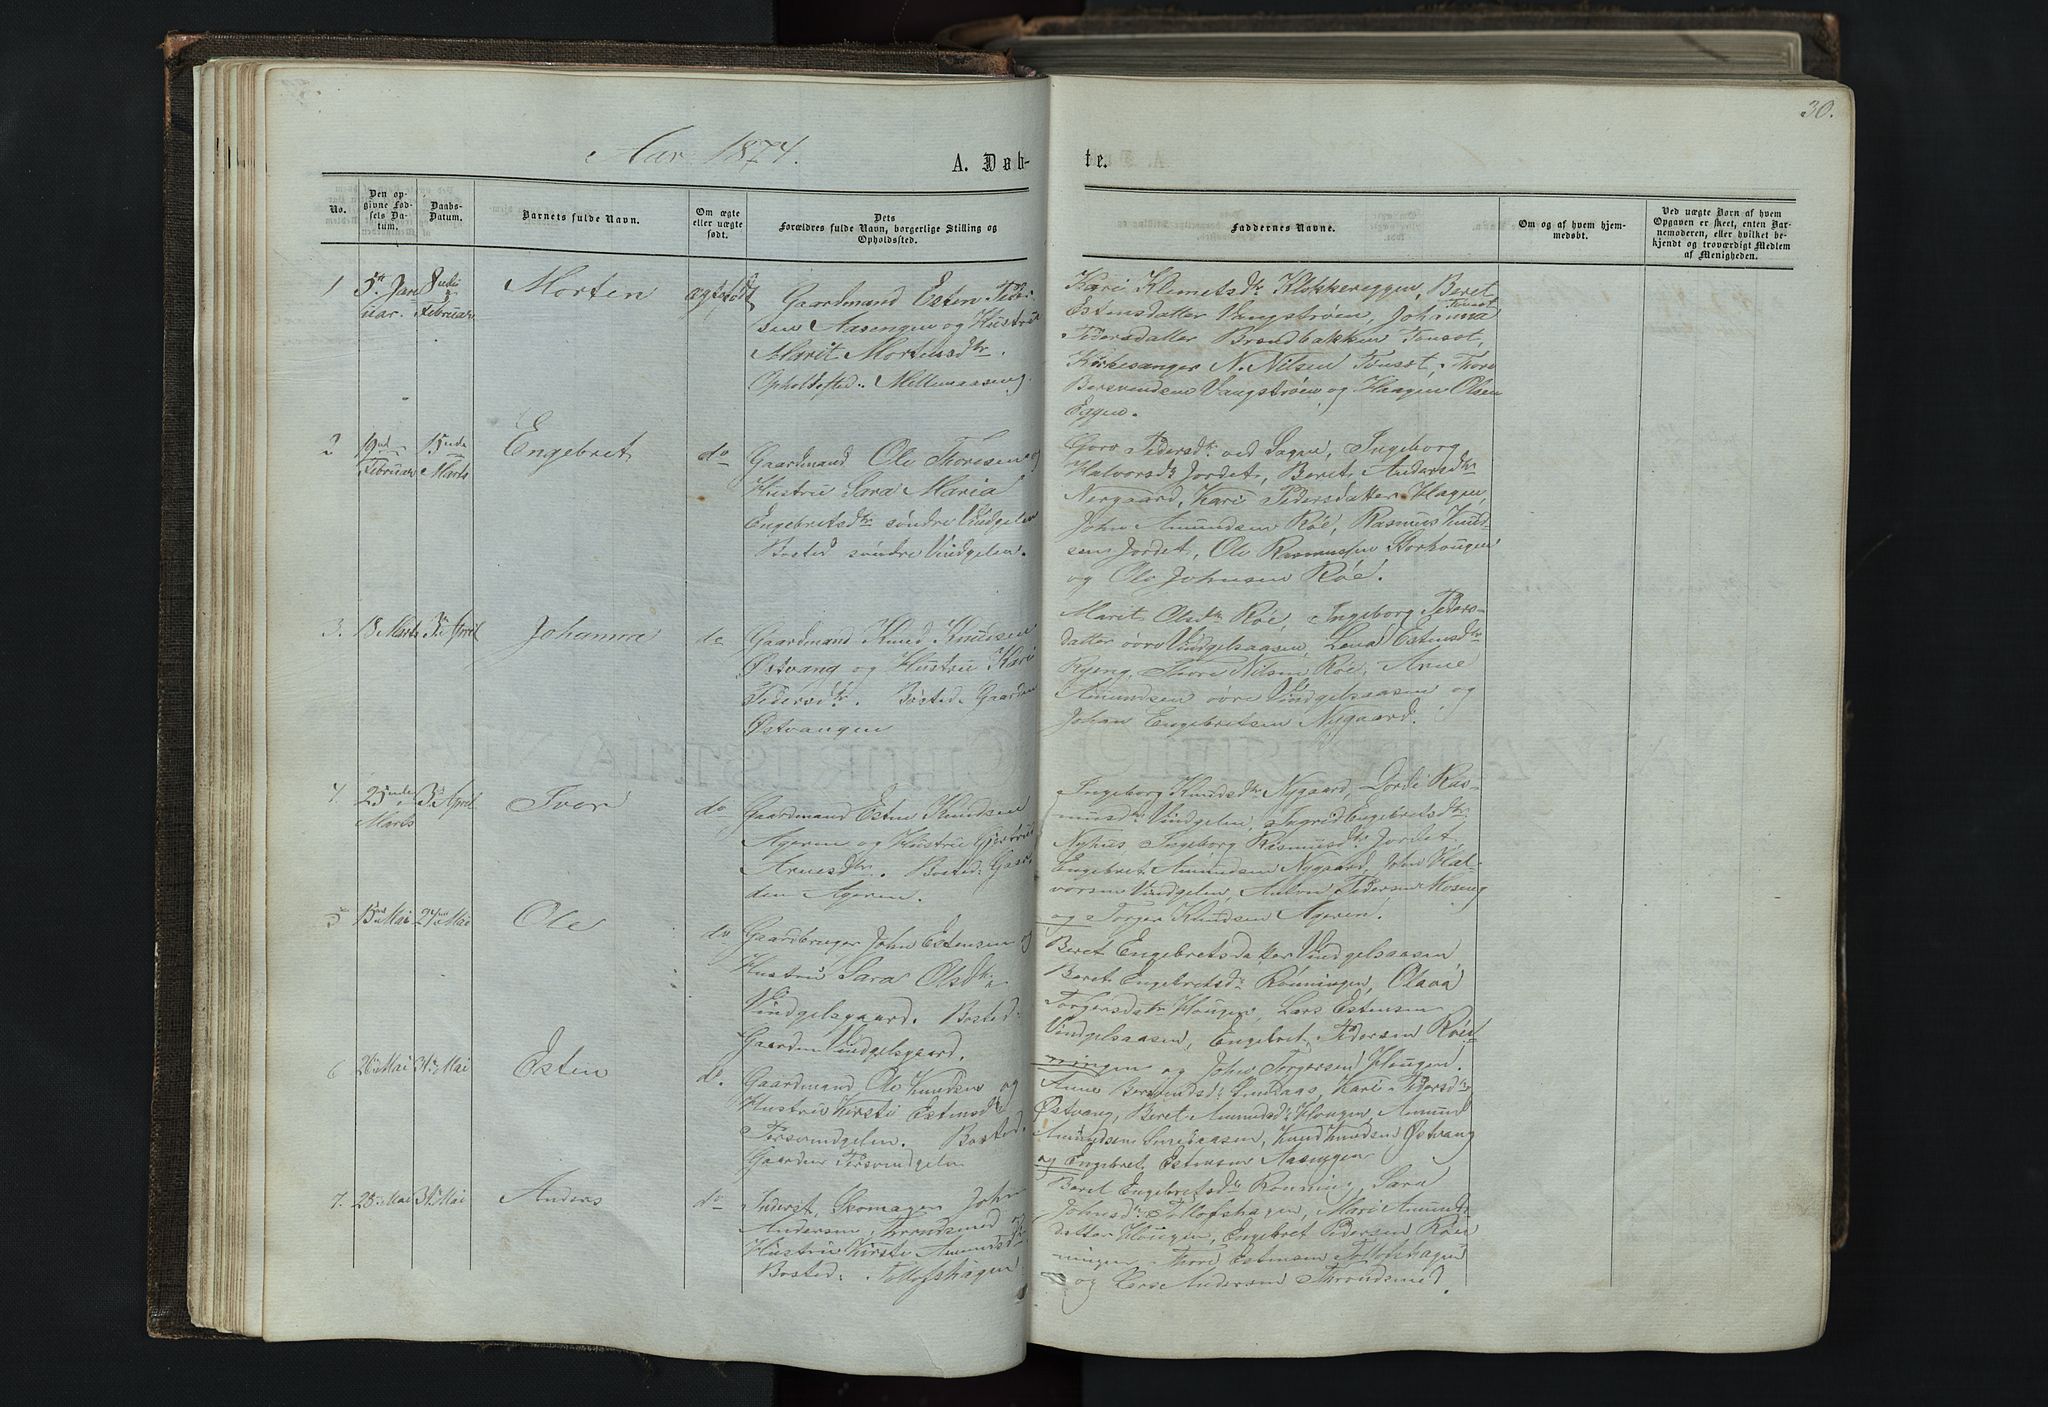 30.
Aar 1874.
A. Døb-
te.
No.
Den op-
givne Fød-
sels Da-
tum.
Daabs-
Datum.
Barnets fulde Navn.
Om ægte
eller uægte
født.
Dets
Forældres fulde Navn, borgerlige Stilling og
Opholdssted.
Faddernes Navne.
Om og af hvem hjem-
medøbt.
Ved uægte Børn af hvem
Opgaven er skeet, enten Bar-
nemoderen, eller hvilket be-
kjendt og troværdigt Medlem
af Menigheden.
1
5te Jan
uar.
8
Februar
Morten
ægtefødt
Gaardmand Esten Peder-
sen Aasengen og Hustru
Marit Mortensdtr.
Opholdssted: Mellemaaseng.
Kari Klemetsdtr Klokkereggen, Beret
Estensdatter Vangstrøen, Johanna
Pedersdatter Brandbakken Tonset,
Kirkesanger N. Nilsen Tonset, Thore
Bersvendsen Vangstrøen og Haagen Olsen
Eggen.
2
19nd
Februar
15nde
Marts
Engebret
do
Gaardmand Ole Thoresen og
Hustru Sara Maria
Engebretsdtr søndre Vindgelen
Bosted søndre Vindgelen.
Goro Pedersdtr ved Sagen, Ingeborg
Halvorsdtr Jordet, Beret Andersdtr
Nergaard, Kari Pedersdatter Hagen,
John Amundsen Røe, Rasmus Knud-
sen Jordet, Ole Rasmussen Storhougen
og Ole Johnsen Røe.
3.
18 Marts
3die April
Johanna
do
Gaardmand Knud Knudsen
Østvang og Hustru Kari
Pedersdtr. Bosted: Gaarden
Østvangen
Marit Olsdtr Røe, Ingeborg Peders-
datter øvre Vindgelsaasen, Lena Estensdtr
Ryeng, Thore Nilsen Røe, Arne
Amundsen øvre Vindgelsaasen og
Johan Engebretsen Nygaard.
4.
25nde
Marts
3die April
Ivar
do
Gaardmand Esten Knudsen
Ageren og Hustru Gjertrud
Arnesdtr. Bosted: Gaar-
den Ageren.
Ingeborg Knudsdtr Nygaard, Dordi Ras-
musdtr Vindgelen, Ingrid Engebretsdtr
Nyhus Ingeborg Rasmusdtr Jordet,
Engebret Amundsen Nygaard, John Hal-
vorsen Vindgelen, Anton Pedersen Moseng
og Torger Knudsen Ageren.
5
15nd Mai
24nd Mai
Ole
do
Gaardbruger John Estensen og
Hustru Sara Olsdtr
Vindgelsgaard. Bosted:
Gaarden Vindgelsgaard.
Beret Engebretsdatter Vindgelsaasen,
Beret Engebretsdtr Rønningen, Olava
Torgersdatr Hougen, Lars Estensen
Vindgelsaasen, Engebret Pedersen Røn-
ningen og John Torgersen Hougen.
6
Mai
31te Mai
Esten
do.
Gaardmand Ole Knudsen og
Hustru Kirsti Estensdtr
Persvindgelen. Bosted:
Gaarden Persvindgelen
Anne Bersvendsdtr Smedaas, Kari Pedersdtr
Østvang, Beret Amundsdtr Hougen, Amund
Amundsen Smedaasen, Knud Knudsen Østvang
og Engebret Estensen Aaseggen
7.
25 Mai
31te Mai
Anders
do
Inderst, Skomager John
Andersen, Trondsmed og
Hustru Kirsti Amundsdtr
Bosted: Tollofshagen
Beret Engebretsdtr Rønning, Sara
Johnsdtr Tollofshagen, Mari Amunds-
datter Hougen, Engebret Pedersen Røn-
ningen, Thore Estensen Tollofshagen
og Andersen Throndsmed.